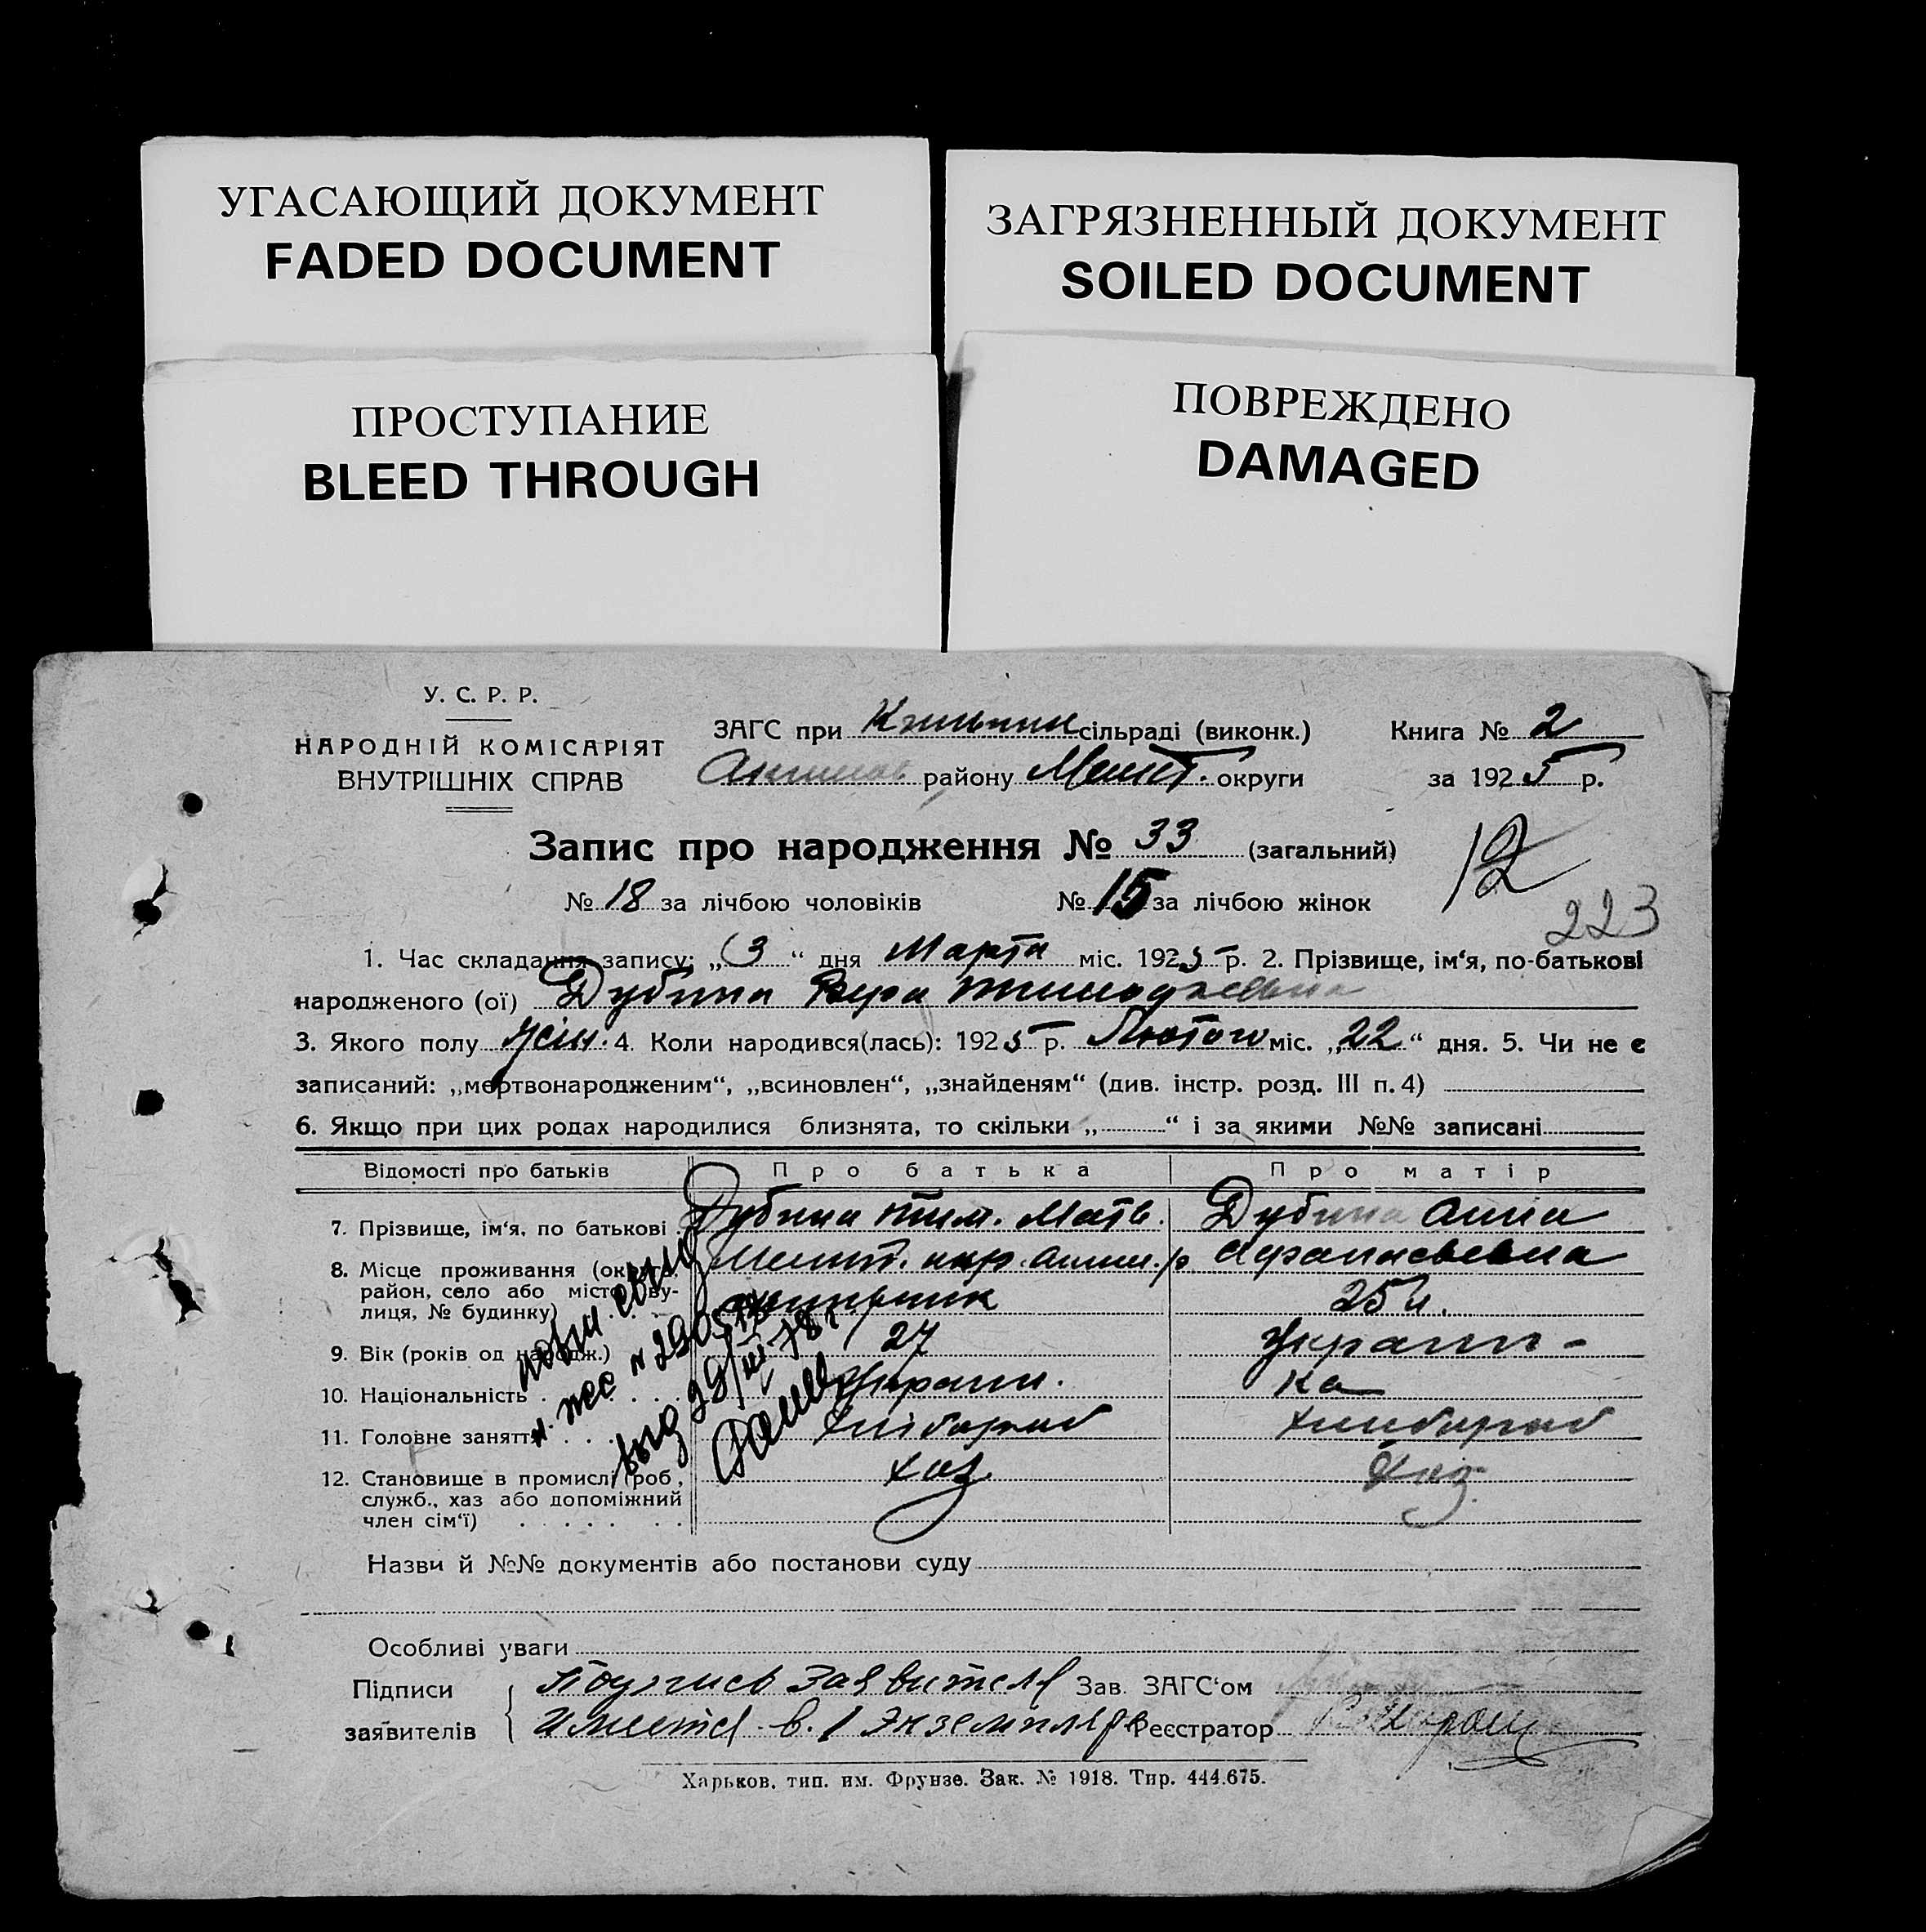 УГАСАЮЩИЙ ДОКУМЕНТ
FADED DOCUMENT
ЗАГРЯЗНЕННЫЙ ДОКУМЕНТ
SOILED DOCUMENT
ПРОСТУПАНИЕ
BLEED THROUGH
ПОВРЕЖДЕНО
DAMAGED
У. С. Р. Р.
НАРОДНІЙ КОМІСАРІЯТ
ВНУТРІШНІХ СПРАВ
ЗАГС при сільраді (виконк.) Книга № 2
району Мелит. округи за 1925 р.
Запис про народження № 33 (загальний)
12
№ 18 за лічбою чоловіків № 15 за лічбою жінок
223
1. Час складання запису: „3“ дня Марта міс. 1925 р. 2. Прізвище, ім‘я, по-батькові
народженого (ої) Дубина Вера Тимофеевна
3. Якого полу жін. 4. Коли народився(лась): 1925 р. Лютого міс. „22“ дня. 5. Чи не є
записаний: „мертвонародженим“, „всиновлен“, „знайденям“ (див. інстр. розд. III п. 4)
6. Якщо при цих родах народилися близнята, то скільки „ “ і за якими №№ записані
Відомості про батьків Про батька Про матір
7. Прізвище, ім‘я, по батькові Дубина Тим. Матв. Дубина Анна
8. Місце проживання (округа, Мелит. окр. Аким. р. Афанасьевна
район, село або місто, ву-
лиця, № будинку) 25 л.
9. Вік (років од народж.) 27 Украин-
10. Національність Украин. ка
11. Головне заняття Хлібороб Хлибороб
12. Становище в промислі (роб., хаз. хаз.
служб., хаз або допоміжний
член сім‘ї)
Назви й №№ документів або постанови суду
Особливі уваги
Підписи Подпись заявителя Зав. ЗАГС‘ом
заявителів имеется в 1 экземпляре Реєстратор
Харьков, тип. им. Фрунзе. Зак. № 1918. Тир. 444.675.